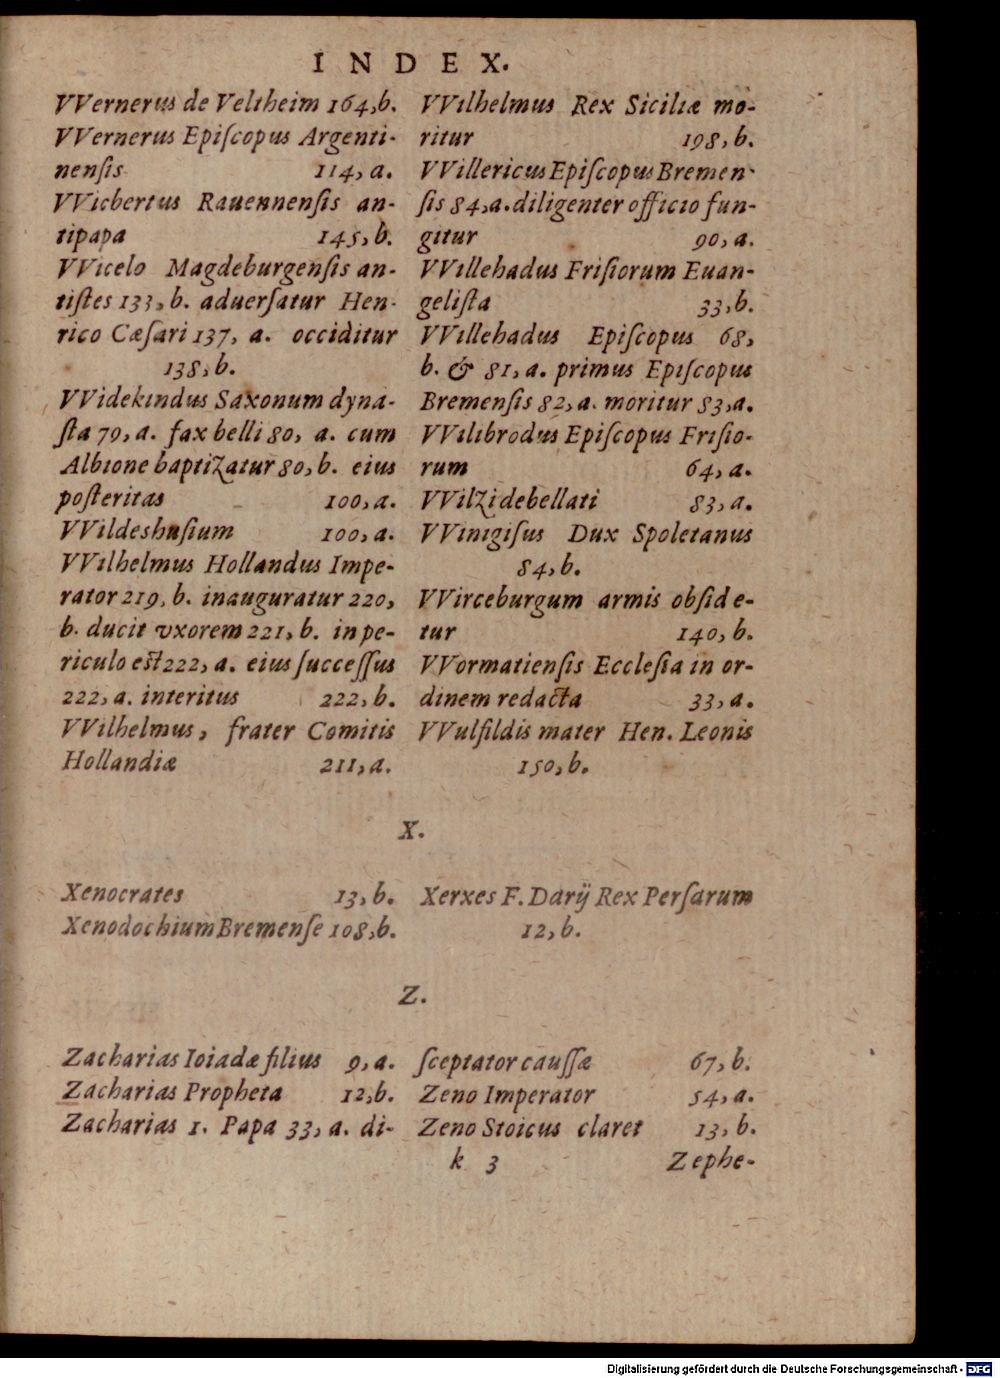 INDEX.
VVernerus de Veltheim 164,b.
VVernerus Epiſcopus Argenti-
nenſis 114, a.
VVicbertus Rauennenſis an-
tipapa 145, b.
VVicelo Magdeburgenſis an-
tiſtes 133, b. aduerſatur Hen-
rico Cæſari 137, a. occiditur
138, b.
VVidekindus Saxonum dyna-
ſta 79, a. fax belli 80, a. cum
Albione baptizatur 80, b. eius
poſteritas 100, a.
VVildeshuſium 100, a.
VVilhelmus Hollandus Impe-
rator 219, b. inauguratur 220,
b. ducit vxorem 221, b. in pe-
riculo est 222, a. eius ſucceſſus
222, a. interitus 222, b.
VVilhelmus, frater Comitis
Hollandiæ 211, a.
VVilhelmus Rex Siciliæ mo-
ritur 198, b.
VVillericus Epiſcopus Bremen-
ſis 84, a. diligenter officio fun-
gitur 90, a.
VVillehadus Friſiorum Euan-
geliſta 33, b.
VVillehadus Epiſcopus 68,
b. & 81, a. primus Epiſcopus
Bremenſis 82, a. moritur 83, a.
VVilibrodus Epiſcopus Friſio-
rum 64, a.
VVilzi debellati 83, a.
VVinigiſus Dux Spoletanus
84, b.
VVirceburgum armis obſide-
tur 140, b.
VVormatienſis Eccleſia in or-
dinem redacta 33, a.
VVulfildis mater Hen. Leonis
150, b.
X.
Xenocrates 13, b.
Xenodochium Bremenſe 108, b.
Xerxes F. Darij Rex Perſarum
12, b.
Z.
Zacharias Ioiadæ filius 9, a.
Zacharias Propheta 12, b.
Zacharias 1. Papa 33, a. di-
ſceptator cauſſæ 67, b.
Zeno Imperator 54, a.
Zeno Stoicus claret 13, b.
k 3 Zephe-
Digitalisierung gefördert durch die Deutsche Forschungsgemeinschaft - DFG